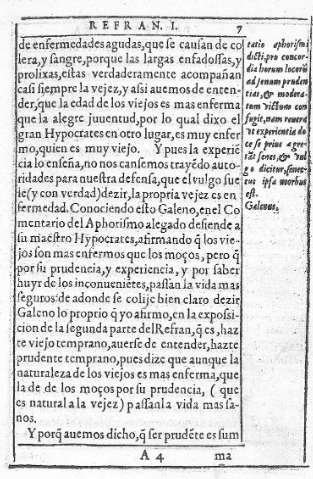 REFRAN. I. 7
de enfermedades agudas, que se causan de co
lera, y sangre, porque las largas enfadossas, y
prolixas, estas verdaderamente acompañan
casi siempre la vejez, y assi auemos de enten-
der, que la edad de los viejos es mas enferma
que la alegre juuentud, por lo qual dixo el
gran Hypocrates en otro lugar, es muy enfer
mo, quien es muy viejo. Y pues la experiē
cia lo enseña, no nos cansemos trayēdo auto-
ridades para nuestra defensa, que el vulgo sue
le (y con verdad) dezir, la propria vejez es en
fermedad. Conociendo esto Galeno, en el Co
mentario del Aphorismo alegado desiende a
su maestro Hypocrates, afirmando q̄ los vie-
jos son mas enfermos que los moços, pero q̄
por su prudencia, y experiencia, y por saber
huyr de los inconuenietes, passan la vida mas
seguros: de adonde se colije bien claro dezir
Galeno lo proprio q̄ yo afirmo, en la exposi-
cion de la segunda parte del Refran, q̄ es, haz
te viejo temprano, auerse de entender, hazte
prudente temprano, pues dize que aunque la
naturaleza de los viejos es mas enferma, que
la de de los moços por su prudencia, ( que
es natural a la vejez) passan la vida mas sa-
nos.
Y porq̄ auemos dicho, q̄ ser prudēte es sum
A 4 ma
tatio aphorismi
dicti, pro concor-
dia horum locorū
ad senum pruden
tias, & modera-
tum victum con
fugit, nam reuera
vt experientia do
ce se prius a gre-
tat senes, & vul
go dicitur, senec-
tus ipsa morbus
est.
Galenus.